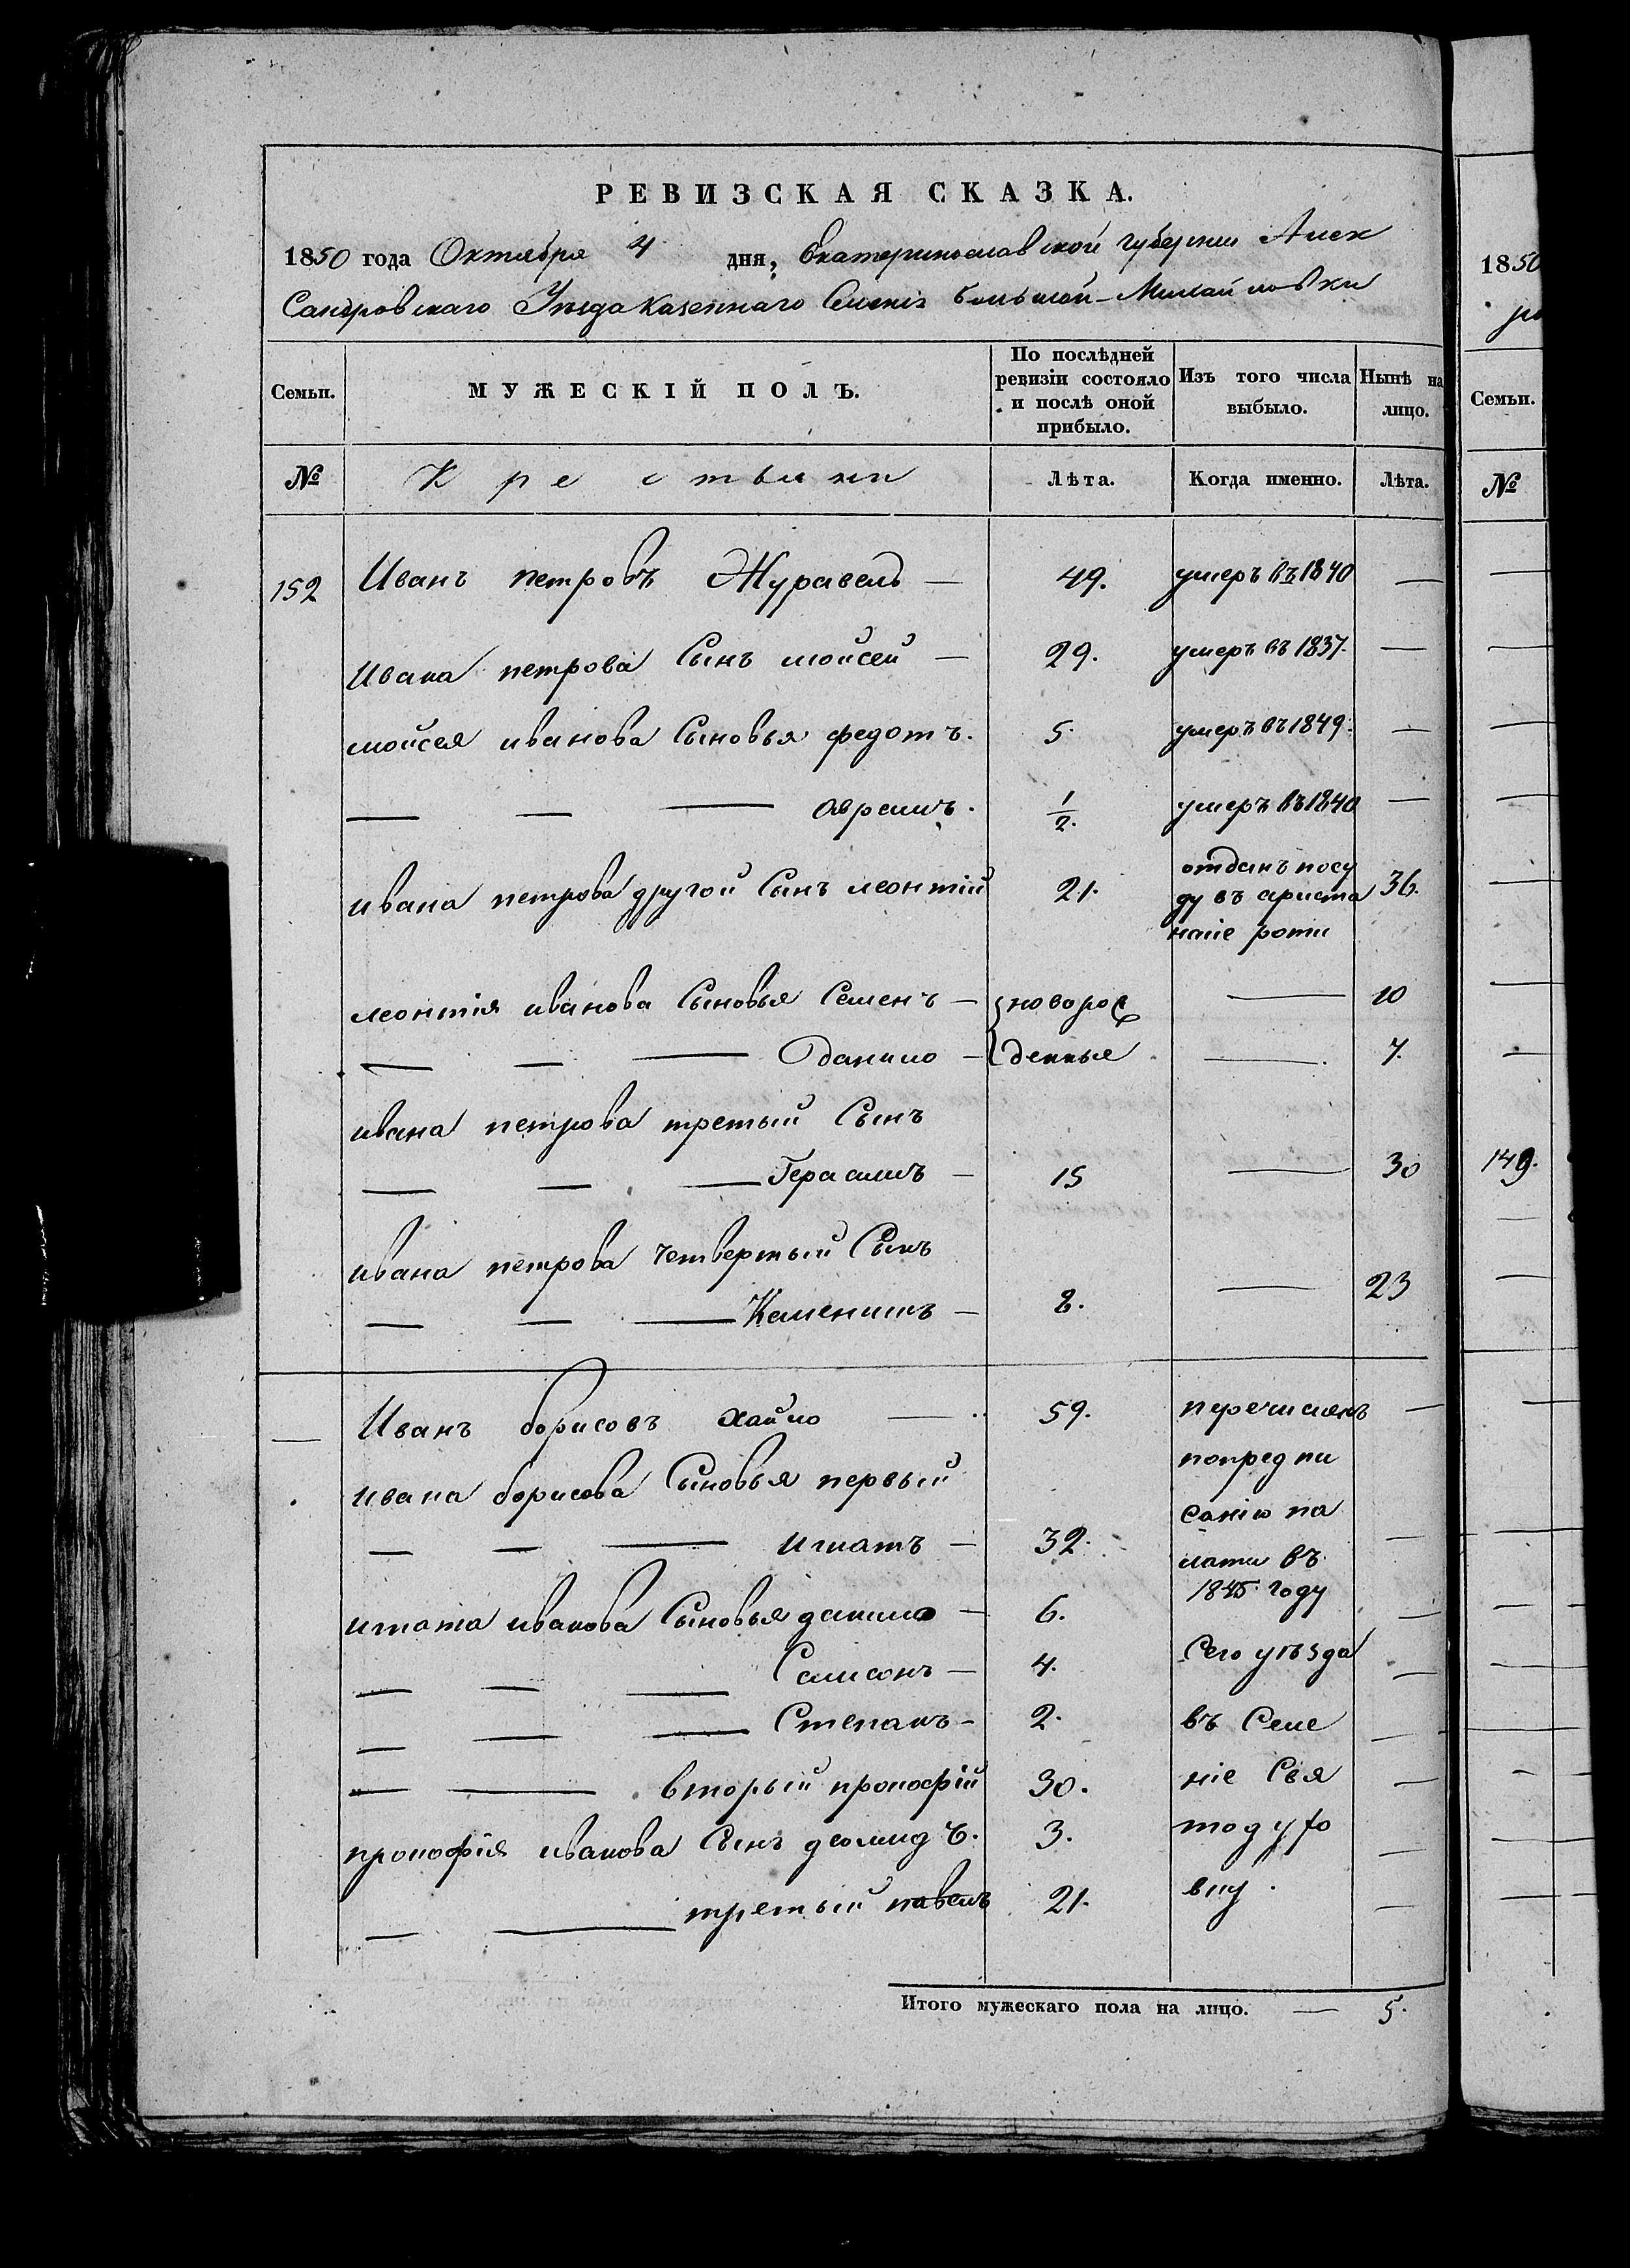 РЕВИЗСКАЯ СКАЗКА.
1850 года Октября 4 дня, Екатеринославской губернии Алек
Сандровскаго Уѣзда казеннаго Селенія Большой-Михайловки
Семьи. МУЖЕСКІЙ ПОЛЪ. По послѣдней ревизіи состояло и послѣ оной прибыло. Изъ того числа выбыло. Нынѣ на лицо.
№ Крестьяни Лѣта. Когда именно. Лѣта.
152 Иванъ петровъ Журавель — 49. умеръ въ 1840 —
Ивана петрова Сынъ мойсей — 29. умеръ въ 1837. —
мойсея иванова Сыновья федотъ. 5. умеръ въ 1849. —
— — — аврамъ. 1/2. умеръ въ 1840 —
ивана петрова другой Сынъ леонтій 21. отданъ посу 36.
ду въ ариста
нские роти
леонтія иванова Сыновья Семенъ — новорож — 10
— — — данило — денные — 7.
ивана петрова третьий Сынъ
— — — Герасимъ — 15 — 30
ивана петрова четвертый Сынъ
— — — Клеменишъ — 8. — 23
— Иванъ борисовъ хайло — 59. перечисленъ —
попредпи
ивана борисова Сыновья первый
санію па
— — — игнатъ — 32. —
латы въ
1845 году
игната иванова Сыновья данило — 6. —
Сего уѣзда
— — — Самсонъ — 4. —
— — — Степанъ — 2. въ Селе —
— — вторый прокофій 30. ніе Свя —
прокофія иванова Сынъ деомидъ. 3. тодухо —
— — третьий павелъ 21. вку. —
Итого мужескаго пола на лицо. — 5.
1850
Семьи.
№
149.